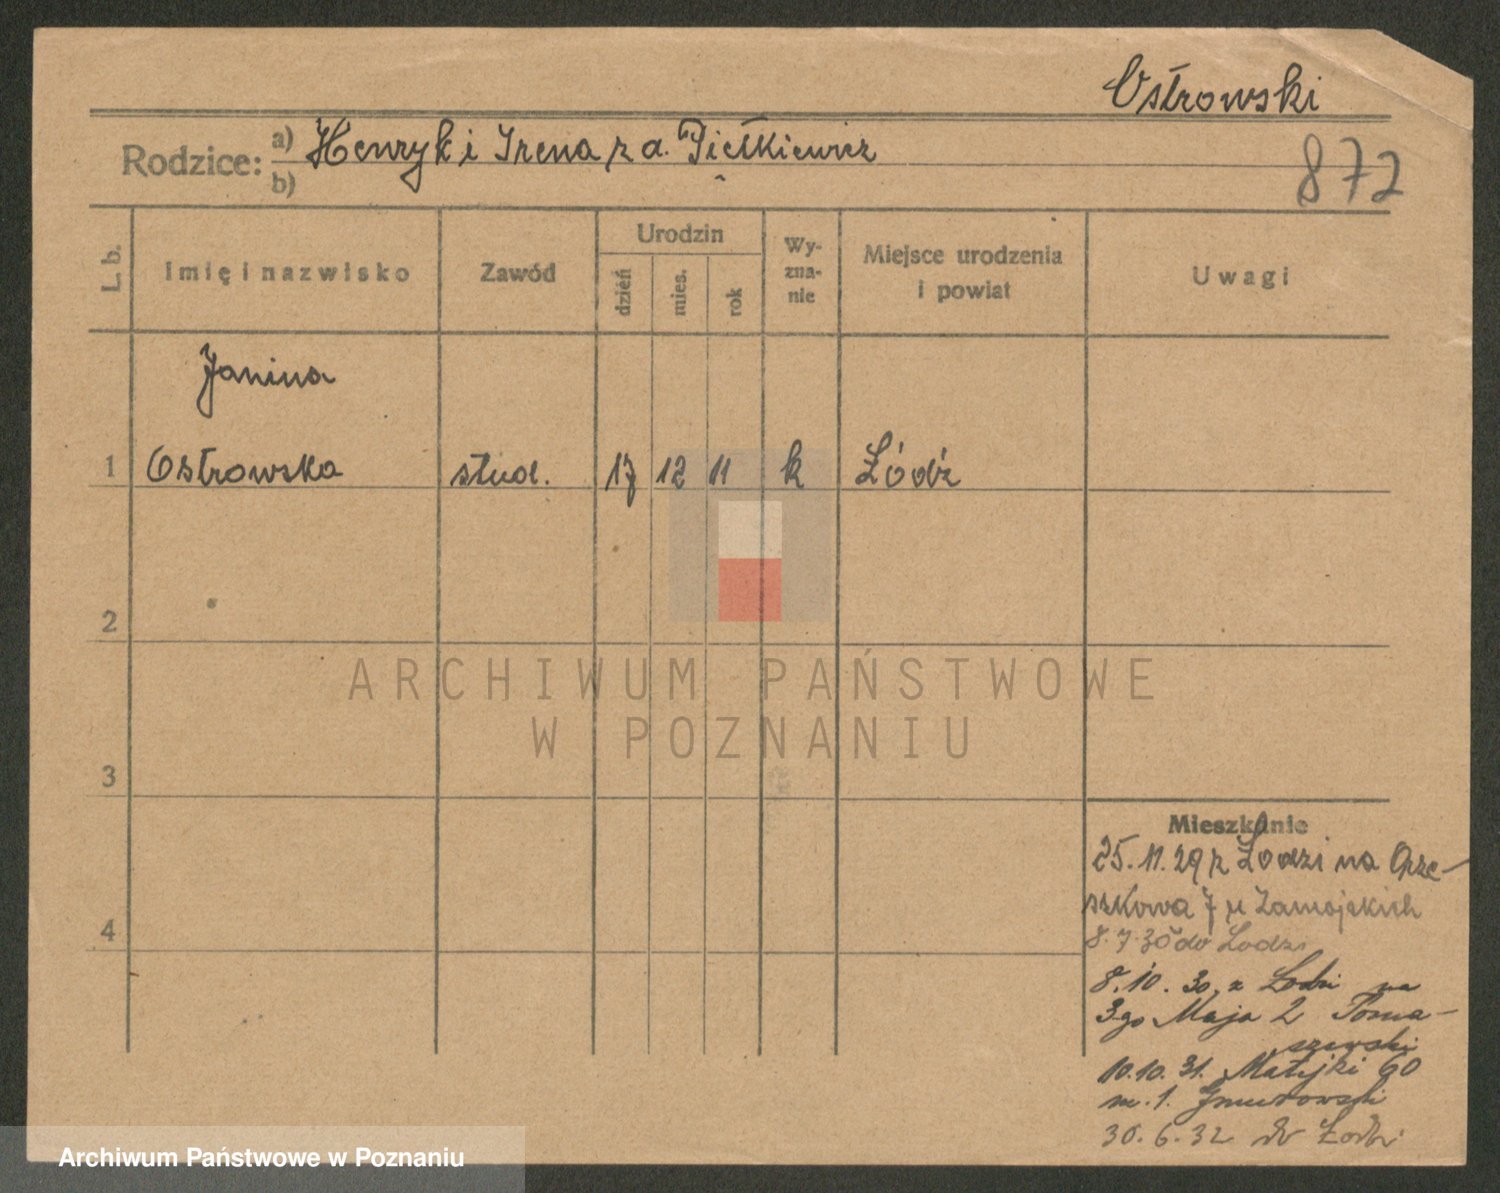 Ostrowski
872
Rodzice: a) Henryk i Irena z d. Pietkiewicz
b)
L. b.
Imię i nazwisko
Zawód
Urodzin
dzień
mies.
rok
Wy-
zna-
nie
Miejsce urodzenia
i powiat
Uwagi
Janina
1 Ostrowska stud. 17 12 11 k Łódź
2
3
4
Mieszkanie
25.11.29 z Łodzi na Orze-
szkowa 7 u Zamojskich
8.7.30 do Łodzi
8.10.30. z Łodzi na
3-go Maja 2 Toma-
szewski
10.10.31. Matejki 60
m. 1.
30.6.32 do Łodzi
ARCHIWUM PAŃSTWOWE
W POZNANIU
Archiwum Państwowe w Poznaniu